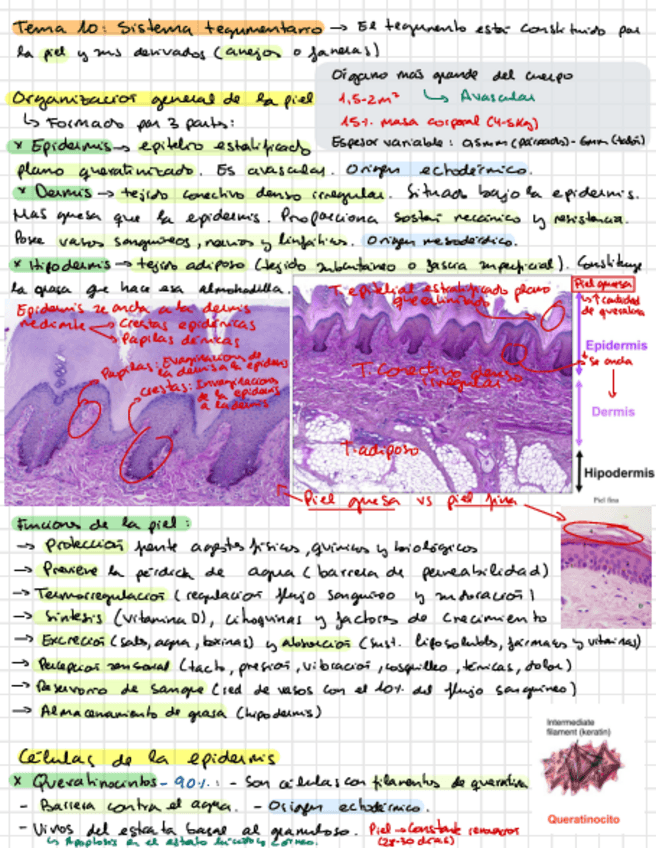 Tema 10: Sistema tegumentario → El tegumento está constituido por
la piel y sus derivados (anejos o faneras)
Órgano más grande del cuerpo
Organización general de la piel
1,5-2m² ↳ Avascular
↳ Formado por 3 partes:
15% masa corporal (4-5kg)
Espesor variable: 0,5mm (párpados) - 6mm (talón)
* Epidermis → epitelio estratificado
plano queratinizado. Es avascular. Origen ectodérmico.
* Dermis → tejido conectivo denso irregular. Situado bajo la epidermis.
Más gruesa que la epidermis. Proporciona sostén mecánico y resistencia.
Posee vasos sanguíneos, nervios y linfáticos. Origen mesodérmico.
* Hipodermis → tejido adiposo (tejido subcutáneo o fascia superficial). Constituye
la grasa que hace esa almohadilla.
Epidermis se ancla a la dermis
mediante → Crestas epidérmicas
↳ Papilas dérmicas
Papilas: Evaginaciones de
la dermis a la epidermis
Crestas: Invaginaciones
de la epidermis
a la dermis
T. epitelial estratificado plano
queratinizado
Piel gruesa
↳ ↑ cantidad
de queratina
Epidermis
Se ancla
T. Conectivo denso
irregular
Dermis
T. adiposo
Hipodermis
Piel fina
Piel gruesa vs piel fina
Funciones de la piel:
→ Protección frente agentes físicos, químicos y biológicos
→ Previene la pérdida de agua (barrera de permeabilidad)
→ Termorregulación (regulación flujo sanguíneo y sudoración)
→ Síntesis (vitamina D), citoquinas y factores de crecimiento
→ Excreción (sales, agua, toxinas) y absorción (sust. liposolubles, fármacos y vitaminas)
→ Percepción sensorial (tacto, presión, vibración, cosquilleo, térmicas, dolor)
→ Reservorio de sangre (red de vasos con el 10% del flujo sanguíneo)
→ Almacenamiento de grasa (hipodermis)
Intermediate
filament (keratin)
Células de la epidermis
* Queratinocitos - 90%: - Son células con filamentos de queratina
- Barrera contra el agua. - Origen ectodérmico.
Queratinocito
- Vivos del estrato basal al granuloso. Piel → Constante renovación
↳ Apoptosis en el estrato lúcido y córneo. (28-30 días)